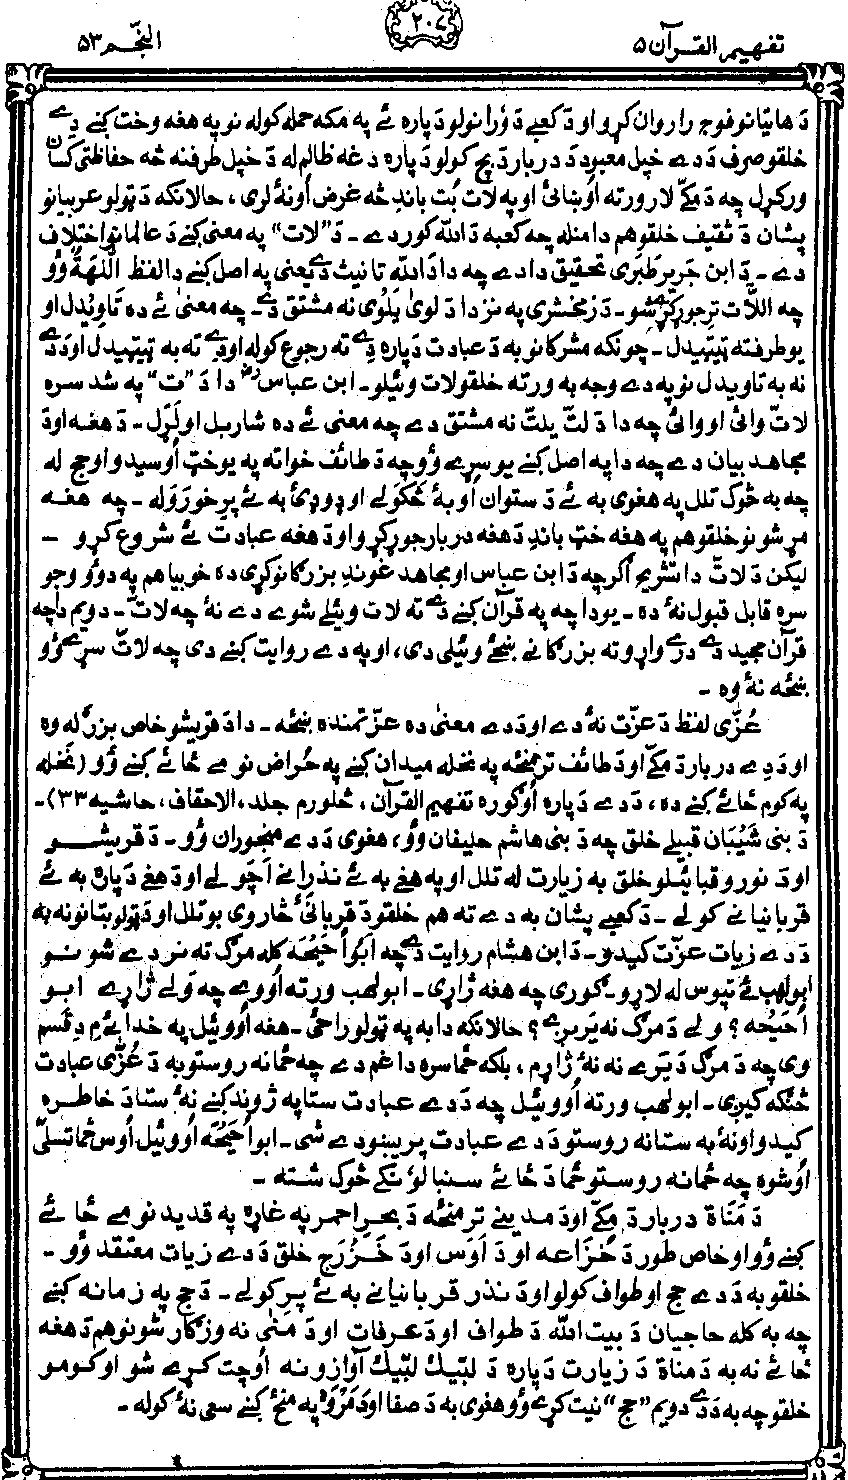 تفهيم القرآن ۵
۲۰۷
النّجم ۵۳
دَ هاتيانو فوج را روان کړو او دَ کعبے دَ وَرانولو دَپاره ئے په مکه حمله کوله نو په هغه وخت کښے دِے
خلقو صرف دَ دے خپل معبود دَ دربار دَ بچ کولو دَپاره دغه ظالم له دَ خپل طرفنه څه حفاظتی کسان
ورکړل چه دَ مکّے لار ورته اُوښائی او په لات بُت باندِ څه غرض اُونۀ لری، حالانکه دَ ټولو عربيانو
پشان دَ ثقيف خلقو هم دا منله چه کعبه دَ الله کور دے ـ دَ ”لات“ په معنی کښے دَ عالمانو اختلاف
دے ـ دَ ابن جرير طبری تحقيق دا دے چه دا دَ الله تانيث دے يعنی په اصل کښے دا لفظ اَللّٰهَةُ وُو
چه اللّات ترِ جوړ کړے شو ـ دَ زمخشری په نزد دا دَ لَوىٰ يَلْوِى نه مشتق دے ـ چه معنیٰ ئے ده تاوٚيدل او
يو طرفته ټيټيدل ـ چونکه مشرکانو به دَ عبادت دَپاره دِے ته رجوع کوله او دِے ته به ټيټيدل او دَ دے
نه به تاويدل نو په دے وجه به ورته خلقو لات وئيلو ـ ابن عباسؓ دا دَ ”ت“ په شد سره
لاتّ وائی او وائی چه دا دَ لتّ يلتّ نه مشتق دے چه معنیٰ ئے ده شاربل او لَړَل ـ دَ هغه او دَ
مجاهد بيان دے چه دا په اصل کښے يو سړے وُو چه دَ طائف خواته په يو خټ اُوسيدو او حج له
چه به څوک تلل په هغوی به ئے دَ ستوان اُوبۀ څکولے او ډوډئ به ئے پرِ خوړَوَله ـ چه هغه
مړ شو نو خلقو هم په هغه خټ باندِ دَ هغه دربار جوړ کړو او دَ هغه عبادت ئے شروع کړو ـ
ليکن دَ لاتّ دا تشريح اگرچه دَ ابن عباس او مجاهد غوندِ بزرگانو کړی ده خو بيا هم په دوؤ وجو
سره قابل قبول نۀ ده ـ يو دا چه په قرآن کښے دے ته لات وئيلے شوے دے نۀ چه لاتّ ـ دويم دا چه
قرآن مجيد دے درے واړو ته بزرگانے ښځے وئيلی دی، او په دے روايت کښے دی چه لاتّ سړے وُو
ښځه نۀ وه ـ
عُزّٰی لفظ دَ عزّت نۀ دے او دَ دے معنیٰ ده عزّتمنده ښځه ـ دا دَ قريشو خاص بزرگه وه
او دَ دِے دربار دَ مکّے او دَ طائف ترمنځه په نخله ميدان کښے په حُراض نومے ځائے کښے وُو (نخله
په کوم ځائے کښے ده، دَ دے دَپاره اُوګوره تفهيم القرآن، څلورم جلد، الاحقاف، حاشيه ۳۳) ـ
دَ بنی شَيْبَان قبيلے خلق چه دَ بنی هاشم حليفان وُو، هغوی دَ دے منجوران وُو ـ دَ قريشو
او دَ نورو قبائيلو خلق به زيارت له تلل او په هغے به ئے نذرانے اَچولے او دَ هغے دَپاره به ئے
قربانيانے کولے ـ دَ کعبے پشان به دے ته هم خلقو دَ قربانئ څاروی بوتلل او دَ ټولو بتانو نه به
دَ دے زيات عزّت کيدو ـ دَ ابن هشام روايت دے چه ابو اُحَيْحَه کله مرګ ته نزدے شو نو
ابولهب ئے تپوس له لاړو ـ گوری چه هغه ژاړی ـ ابولهب ورته اُووے چه وَلے ژاړے ابو
اُحَيْحه؟ ولے دَ مرګ نه يَريږے؟ حالانکه دا به په ټولو راځی ـ هغه اُووئيل په خدائے مِ دِ قسم
وی چه دَ مرګ دَ يَرے نه نۀ ژاړم، بلکه ځما سره دا غم دے چه ځما نه روستو به دَ عُزّٰی عبادت
څنګه کيږی ـ ابولهب ورته اُووئيل چه دَ دے عبادت ستا په ژوند کښے نۀ ستا دَ خاطره
کيدو او نۀ به ستا نه روستو دَ دے عبادت پريښودے شی ـ ابو اُحَيْحَه اُووئيل اُوس ځما تسلّی
اُوشوه چه ځما نه روستو ځما دَ ځائے سنبالوٚنکے څوک شته ـ
دَ مَنَاة دربار دَ مکّے او دَ مدينے ترمنځه دَ بحرِ احمر په غاړه په قديد نومے ځائے
کښے وُو او خاص طور دَ خُزاعه او دَ اَوس او دَ خَزْرَج خلق دَ دے زيات معتقد وُو ـ
خلقو به دَ دے حج او طواف کولو او دَ نذر قربانيانے به ئے پرِ کولے ـ دَ حج په زمانه کښے
چه به کله حاجيان دَ بيت الله دَ طواف او دَ عرفات او دَ منٰی نه وزګار شو نو هم دَ هغه
ځائے نه به دَ مناة دَ زيارت دَپاره دَ لبّيك لبّيك آوازونه اُوچت کړے شو او کومو
خلقو چه به دَ دے دويم ”حج“ نيت کړے وُو هغوی به دَ صفا او دَ مَرْوَه په منځ کښے سعی نۀ کوله ـ